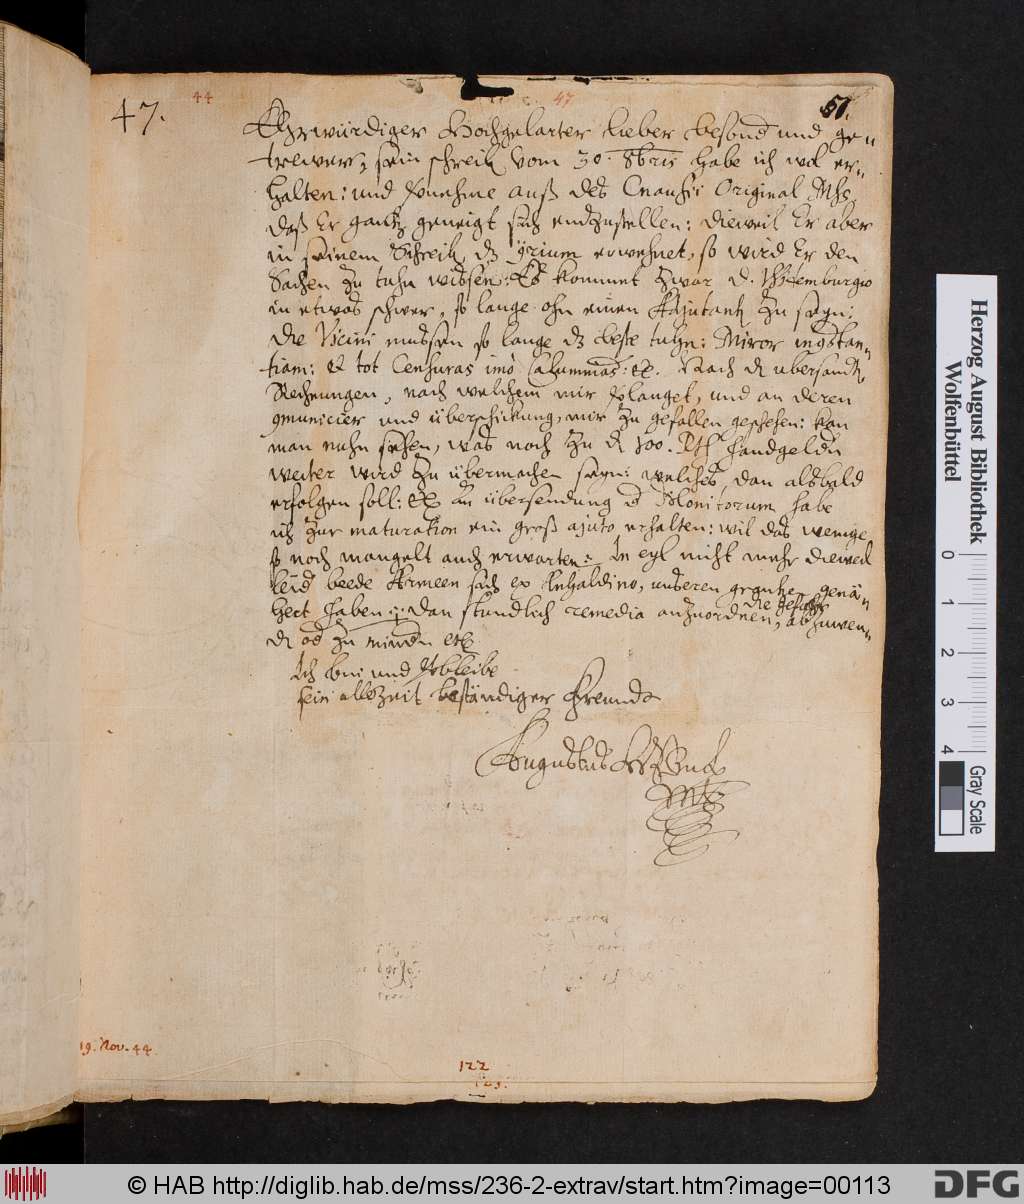 47.
44
47
51.
Ehrwürdiger Hochgelarter lieber besond und ge-
trewer, sein schreib vom 30. 8bris habe ich wol er-
halten: und vernehme auß des Original
daß Er gantz geneigt sich einzustellen: dieweil Er aber
in seinem Schreib. dz erwehnet, so wird Er den
Sachen zu tuhn wissen: Es kommet zwar d.
in etwas schwer, so lange ohn einen Adjutant zu seyn:
die Vicini müssen so lange dz beste tuhn: Miror
tiam: et tot Censuras imò Calumnias: etc. Nach d übersandt
Rechnungen, nach welchem mir verlanget, und an deren
und überschickung, mir zu gefallen geschehen: kan
man nuhn sehen, was noch zu d 100. Rth handgeldn
weiter wird zu übermachen seyn: welches dan alsbald
erfolgen soll: etc. übersendung d Monitorum habe
ich zur maturation ein groß ajuto erhalten: wil das wenige
so noch mangelt auch erwarten: In eyl nicht mehr dieweil
leid beede Armeen sich ex Anhaldino, unseren grentzen genä-
hert haben: dan stündlich remedia anzuordnen, die gefahr abzuwen-
d od zu mindn etc.
Ich bin und verbleibe
sein allezeit beständiger Freund
Augustus HZBuL
19. Nov. 44.
122
123.
Herzog August Bibliothek
Wolfenbüttel
0 1 2 3 4
Gray Scale
© HAB http://diglib.hab.de/mss/236-2-extrav/start.htm?image=00113
DFG